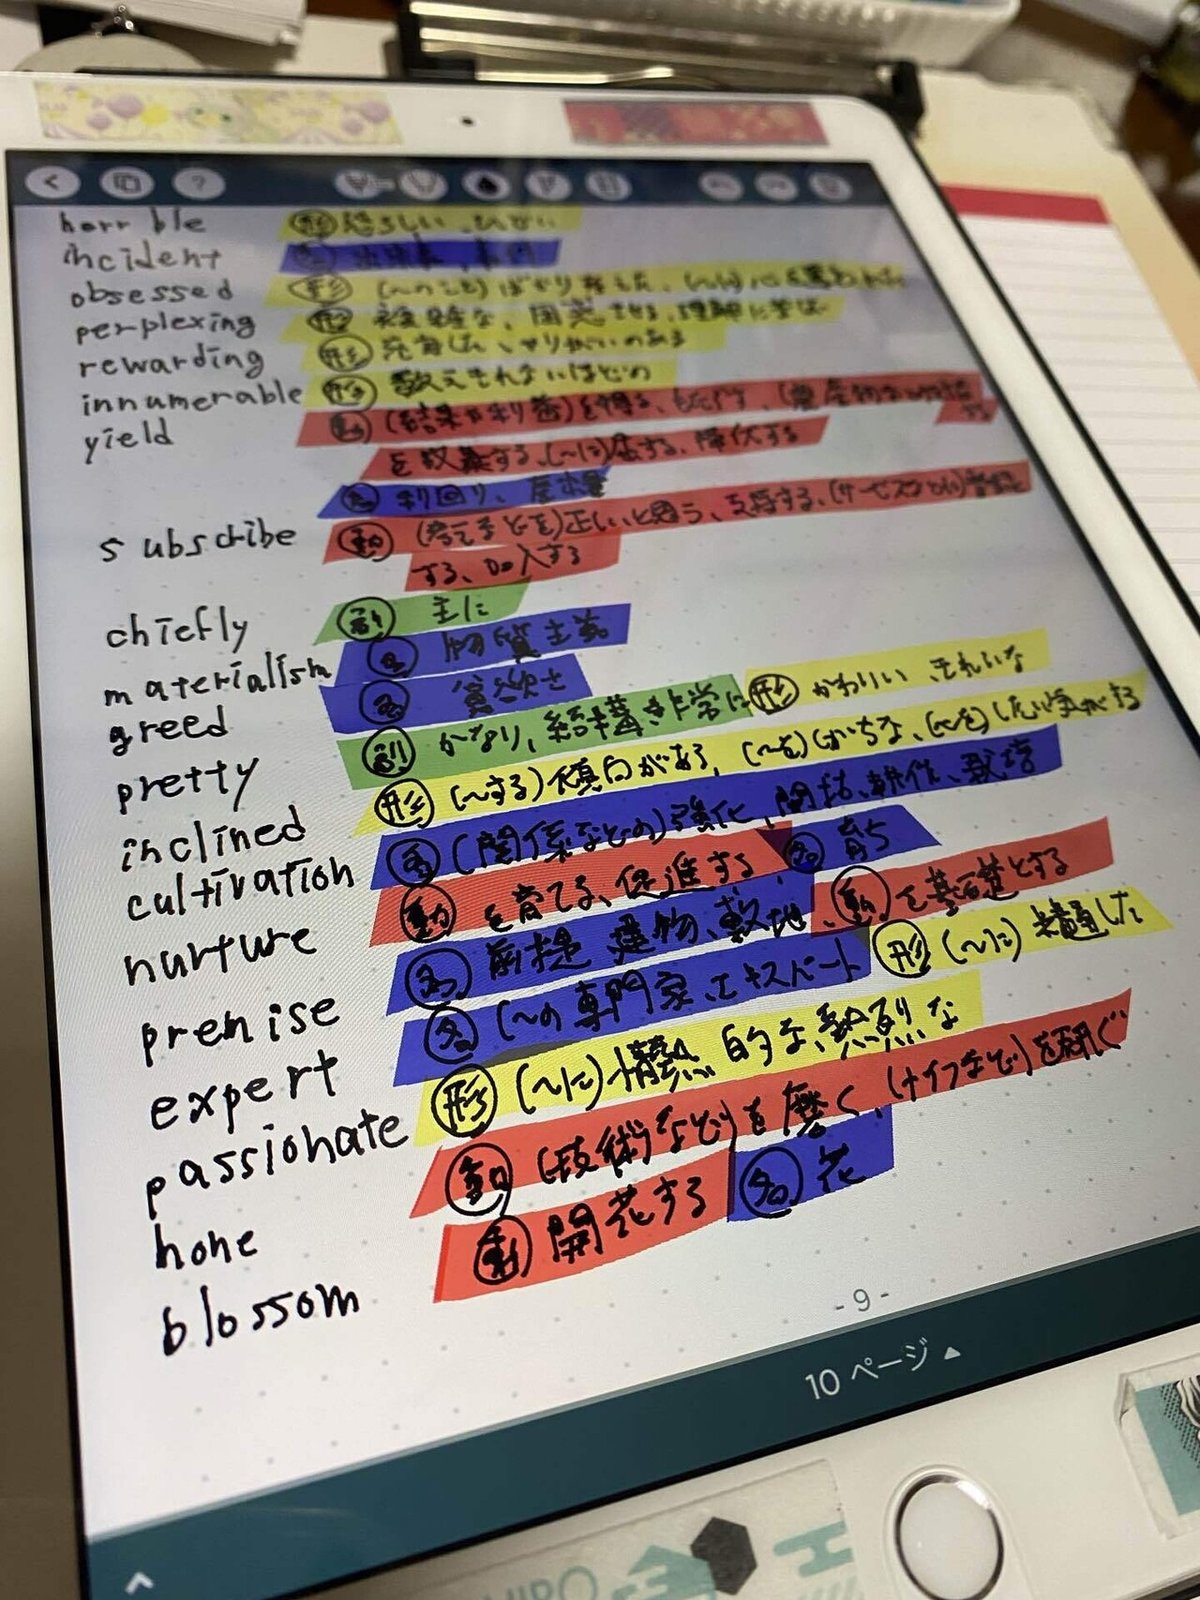 horrible 形 恐ろしい、ひどい
incident 名
obsessed 形 (〜のこと)ばかり考えた、(〜に)心を奪われた
perplexing 形 複雑な、困惑させる、理解に苦しむ
rewarding 形 充実した、やりがいのある
innumerable 形 数えきれないほどの
yield 動 (結果や利益)を得る、もたらす、(農産物など)
を収集する、(〜に)屈する、降伏する
名 利回り、産出量
subscribe 動 (考えなどを)正しいと思う、支持する、(サービスなどに)登録
する、加入する
chiefly 副 主に
materialism 名 物質主義
greed 名 貪欲さ
pretty 副 かなり、結構 非常に 形 かわいい きれいな
inclined 形 (〜する)傾向がある、(〜を)しがちな、(〜を)したい気がする
cultivation 名 (関係などの)強化、開拓、耕作、栽培
nurture 動 を育てる、促進する 名 育ち
premise 名 前提 建物、敷地、動 を基礎とする
expert 名 (〜の専門家、エキスパート 形 (〜に)精通した
passionate 形 (〜に)情熱的な、熱烈な
hone 動 (技術など)を磨く、(ナイフなど)を研ぐ
blossom 動 開花する 名 花
- 9 -
10 ページ